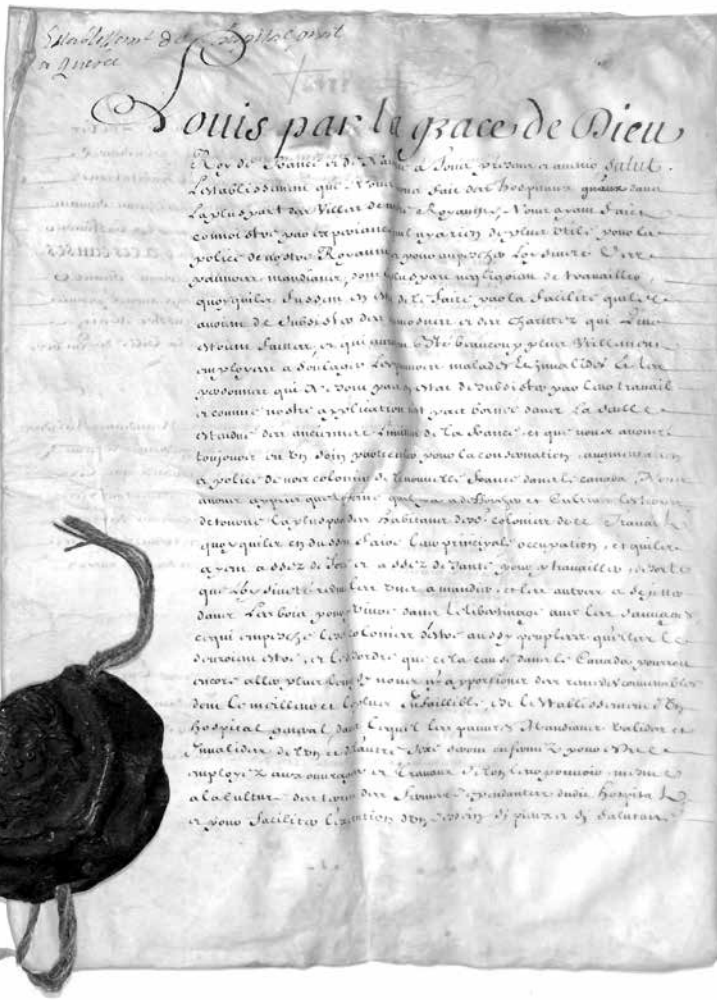 Establissement de l'hospital general
a Quebec
Louis par la grace de Dieu
Roy de France et de Navarre a Tous presens et advenir Salut.
L'establissement que Nous avons fait des hospitaux gnaux dans
La plus part des Villes de nostre Royaume, Nous ayant fait
connoistre par experience qu'il n'y a rien de plus utile pour la
police de nostre Royaume pour empescher L'oysiveté
pauvres mandians, dont la plus part negligoient de travailler,
quoyquiler fussent en estat de le faire par la facilité quiler
avoient de subsister des aumosnes et des charitez qui Leur
estoient faittes, et qui auroient esté beaucoup plus Utilement
employées a soulager Les pauvres malades et invalides et les
personnes qui ne sont pas en estat de subsister par leur travail
et comme nostre application n'est pas bornée dans La seule
estendue des anciennes Limites de La france, et que nous avons
toujours eu un soin particulier pour la conservation, augmentation
et police de nos colonies de la nouvelle france dans le canada, Nous
avons appris que
de toute La plus part des habitans desd. colonies de le Travail
quoyquiler en dussent faire leur principale occupation, et quiler
ayent assez de force et assez de santé pour y travailler, de sorte
que L'oysiveté reduit les uns a mandier, et les autres a se jetter
dans Les bois pour vivre dans le libertinage avec les sauvages
ce qui empesche les colonies d'estre aussy peuplées qu'elles le
devroient estre, et le desordre que cela cause dans le Canada pourroit
encore aller plus loin sy nous n'y apportions des remedes convenables
dont le meilleur et le plus Infaillible est le establissement d'un
hospital general dans lequel les pauvres Mandians Valides et
Invalides de l'un et de l'autre sexe seront enfermez pour estre
employez aux ouvrages et travaux selon leur pouvoir mesme
a la culture des terres des fermes dependantes dudit hospital
et pour faciliter l'execution d'un dessein sy pieux et sy salutaire